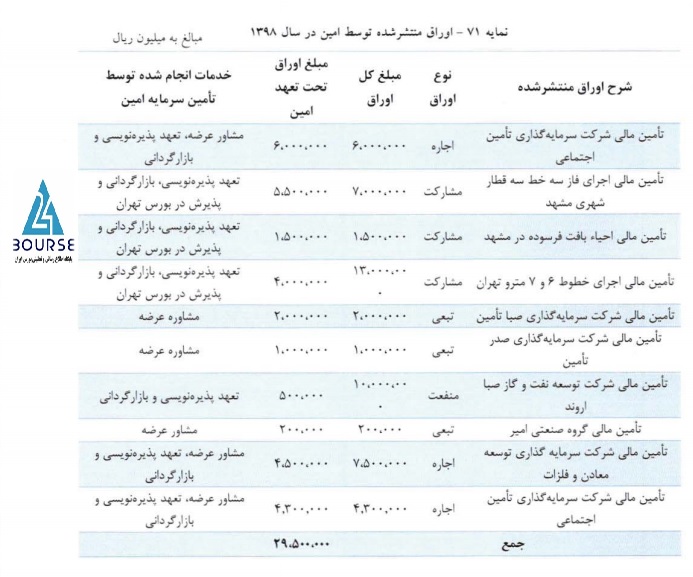 نمایه ۷۱ - اوراق منتشرشده توسط امین در سال ۱۳۹۸
مبالغ به میلیون ریال
شرح اوراق منتشرشده نوع اوراق مبلغ کل اوراق مبلغ اوراق تحت تعهد امین خدمات انجام شده توسط تأمین سرمایه امین
تأمین مالی شرکت سرمایه‌گذاری تأمین اجتماعی اجاره ۶،۰۰۰،۰۰۰ ۶،۰۰۰،۰۰۰ مشاور عرضه، تعهد پذیره‌نویسی و بازارگردانی
تأمین مالی اجرای فاز سه خط سه قطار شهری مشهد مشارکت ۷،۰۰۰،۰۰۰ ۵،۵۰۰،۰۰۰ تعهد پذیره‌نویسی، بازارگردانی و پذیرش در بورس تهران
تأمین مالی احیاء بافت فرسوده در مشهد مشارکت ۱،۵۰۰،۰۰۰ ۱،۵۰۰،۰۰۰ تعهد پذیره‌نویسی، بازارگردانی و پذیرش در بورس تهران
تأمین مالی اجرای خطوط ۶ و ۷ مترو تهران مشارکت ۱۳،۰۰۰،۰۰۰ ۴،۰۰۰،۰۰۰ تعهد پذیره‌نویسی، بازارگردانی و پذیرش در بورس تهران
تأمین مالی شرکت سرمایه‌گذاری صبا تأمین تبعی ۲،۰۰۰،۰۰۰ ۲،۰۰۰،۰۰۰ مشاوره عرضه
تأمین مالی شرکت سرمایه‌گذاری صدر تأمین تبعی ۱،۰۰۰،۰۰۰ ۱،۰۰۰،۰۰۰ مشاوره عرضه
تأمین مالی شرکت توسعه نفت و گاز صبا اروند منفعت ۱۰،۰۰۰،۰۰۰ ۵۰۰،۰۰۰ تعهد پذیره‌نویسی و بازارگردانی
تأمین مالی گروه صنعتی امیر تبعی ۲۰۰،۰۰۰ ۲۰۰،۰۰۰ مشاور عرضه
تأمین مالی شرکت سرمایه گذاری توسعه معادن و فلزات اجاره ۷،۵۰۰،۰۰۰ ۴،۵۰۰،۰۰۰ مشاور عرضه، تعهد پذیره‌نویسی و بازارگردانی
تأمین مالی شرکت سرمایه‌گذاری تأمین اجتماعی اجاره ۴،۳۰۰،۰۰۰ ۴،۳۰۰،۰۰۰ مشاور عرضه، تعهد پذیره‌نویسی و بازارگردانی
جمع ۲۹،۵۰۰،۰۰۰
BOURSE